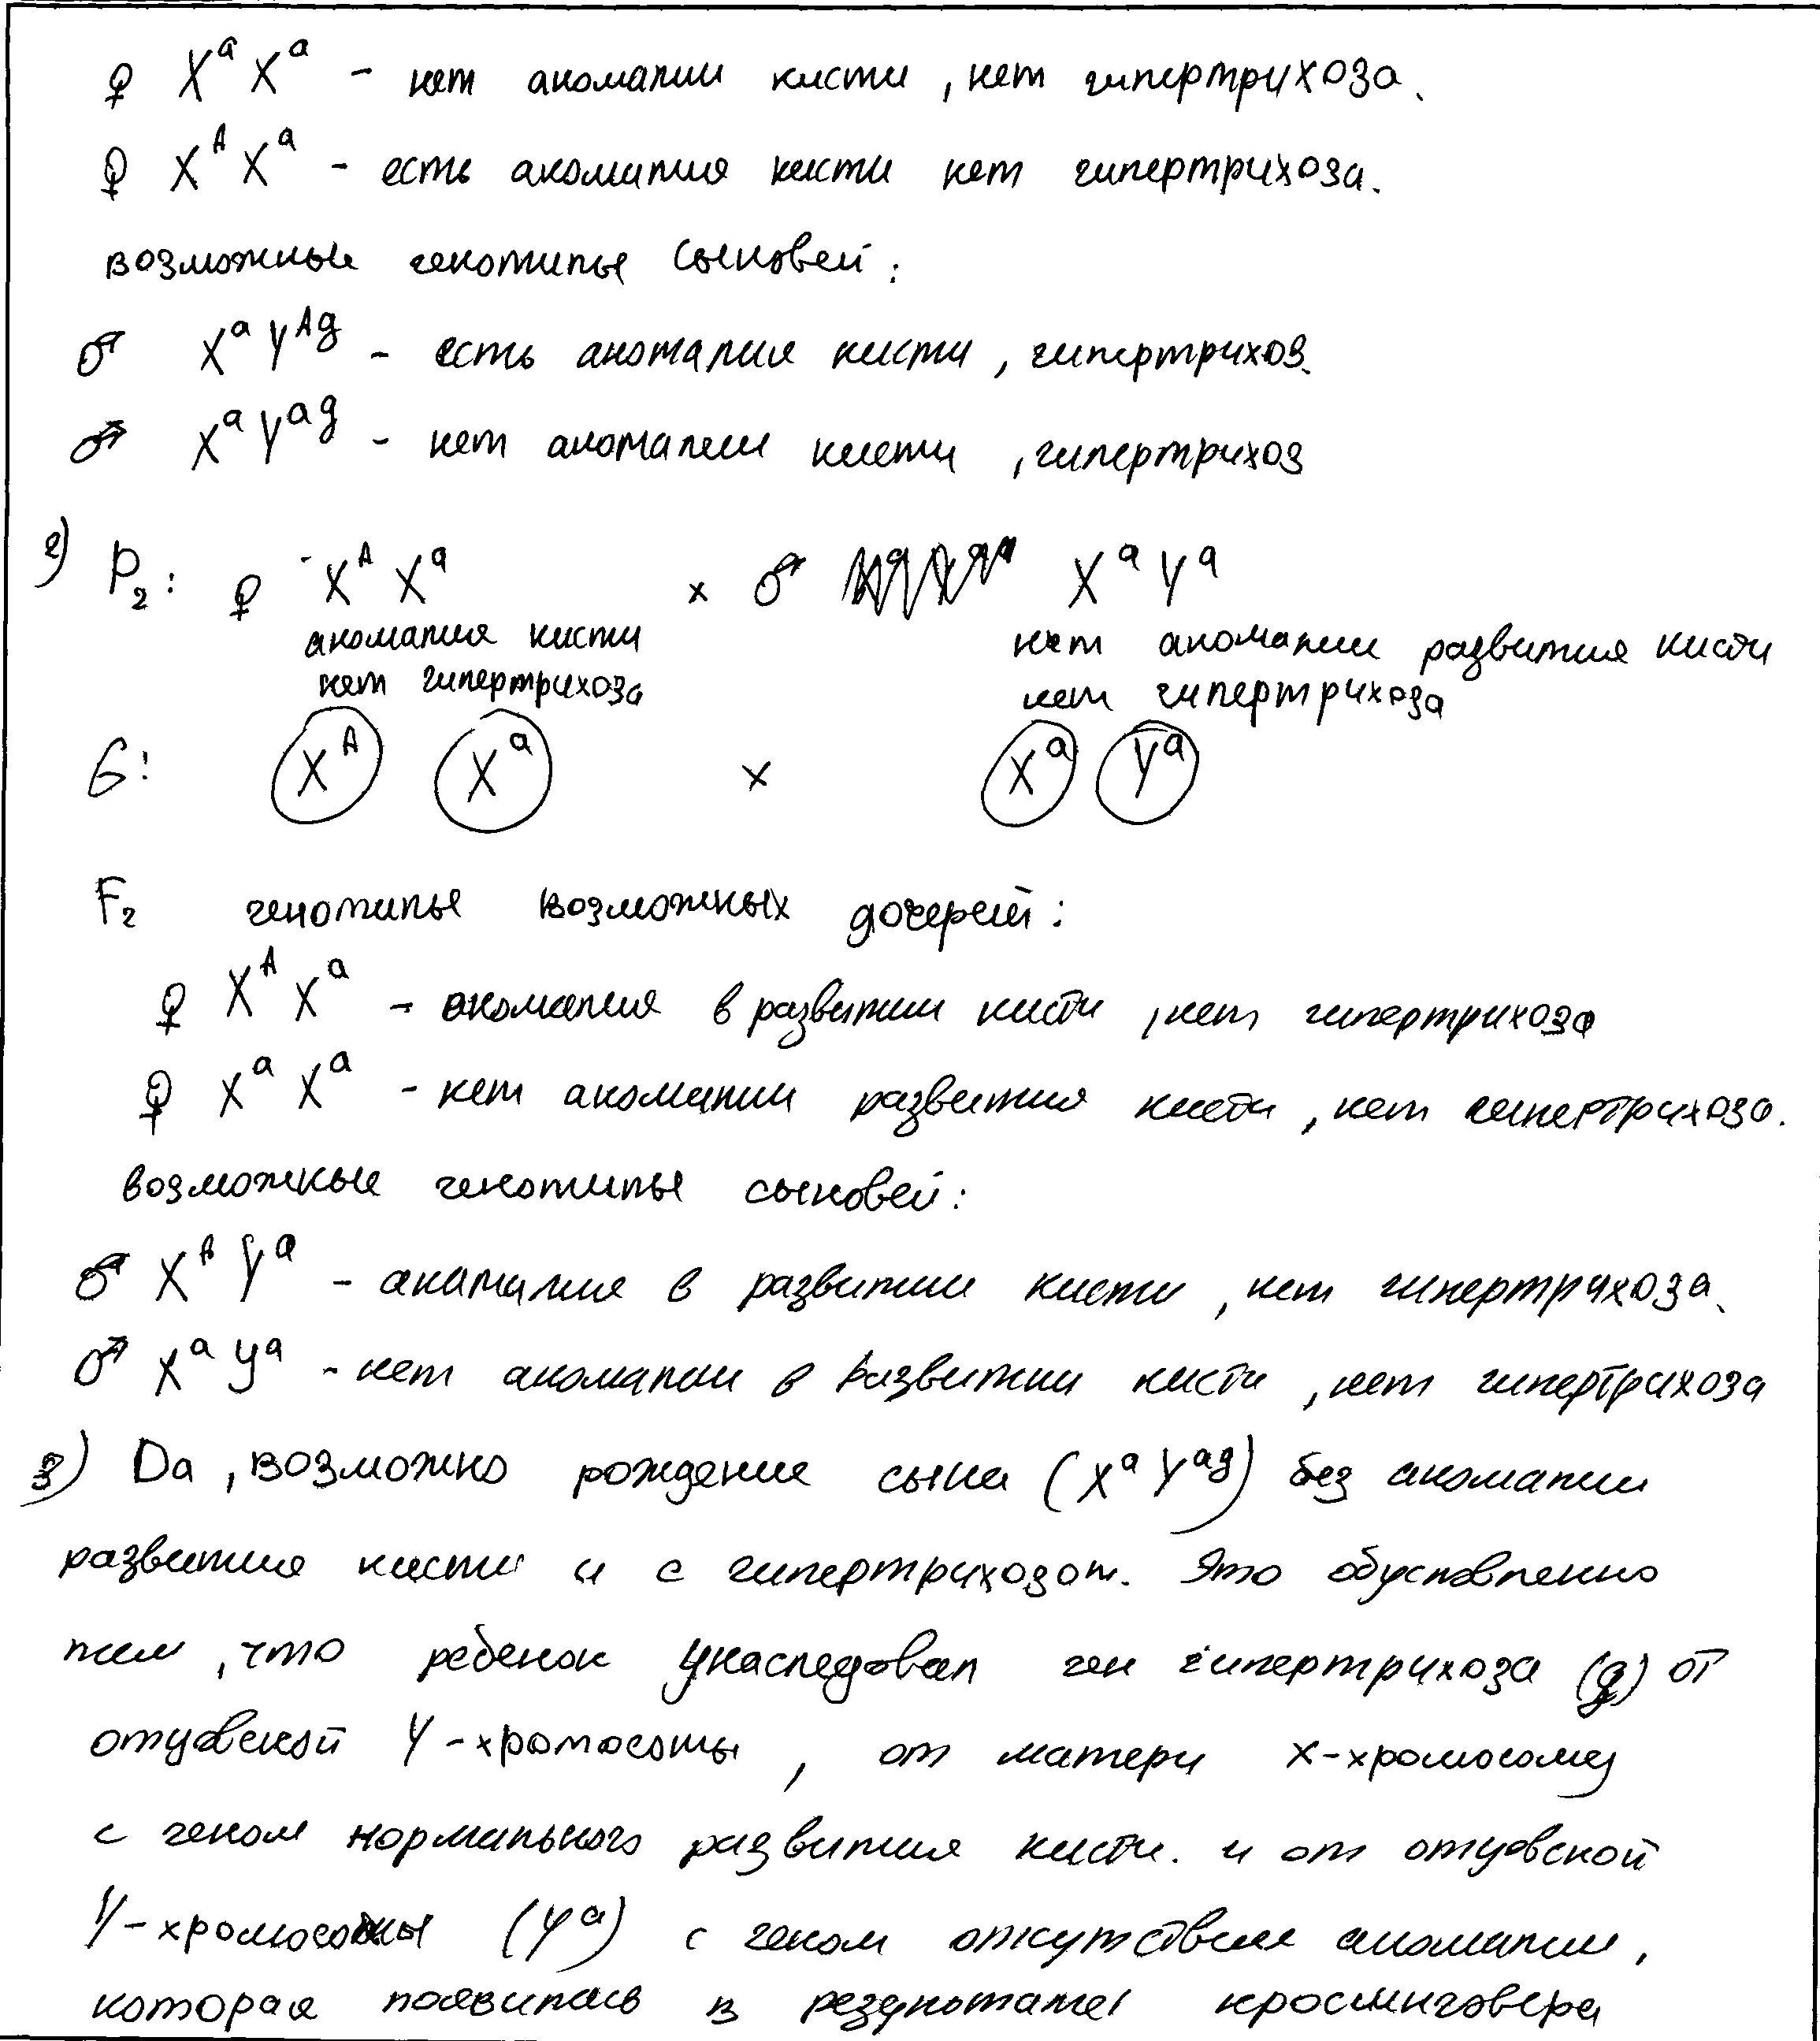 ♀ XᵃXᵃ - нет аномалии кисти, нет гипертрихоза.
♀ XᴬXᵃ - есть аномалия кисти нет гипертрихоза.
возможные генотипы сыновей:
♂ XᵃYᴬᵍ - есть аномалия кисти, гипертрихоз.
♂ XᵃYᵃᵍ - нет аномалии кисти, гипертрихоз
2) P₂: ♀ XᴬXᵃ × ♂ XᵃYᵃ
аномалия кисти нет аномалии развития кисти
нет гипертрихоза нет гипертрихоза
G: Xᴬ Xᵃ × Xᵃ Yᵃ
F₂ генотипы возможных дочерей:
♀ XᴬXᵃ - аномалия в развитии кисти, нет гипертрихоза
♀ XᵃXᵃ - нет аномалии развития кисти, нет гипертрихоза.
возможные генотипы сыновей:
♂ XᴬYᵃ - аномалия в развитии кисти, нет гипертрихоза.
♂ XᵃYᵃ - нет аномалии в развитии кисти, нет гипертрихоза
3) Да, возможно рождение сына (XᵃYᵃᵍ) без аномалии
развития кисти и с гипертрихозом. Это обусловленно
тем, что ребенок унаследовал ген гипертрихоза (g) от
отцовской Y-хромосомы, от матери X-хромосому
с геном нормального развития кисти. и от отцовской
Y-хромосомы (Yᵃ) с геном отсутствие аномалии,
которая появилась в результате кроссинговера